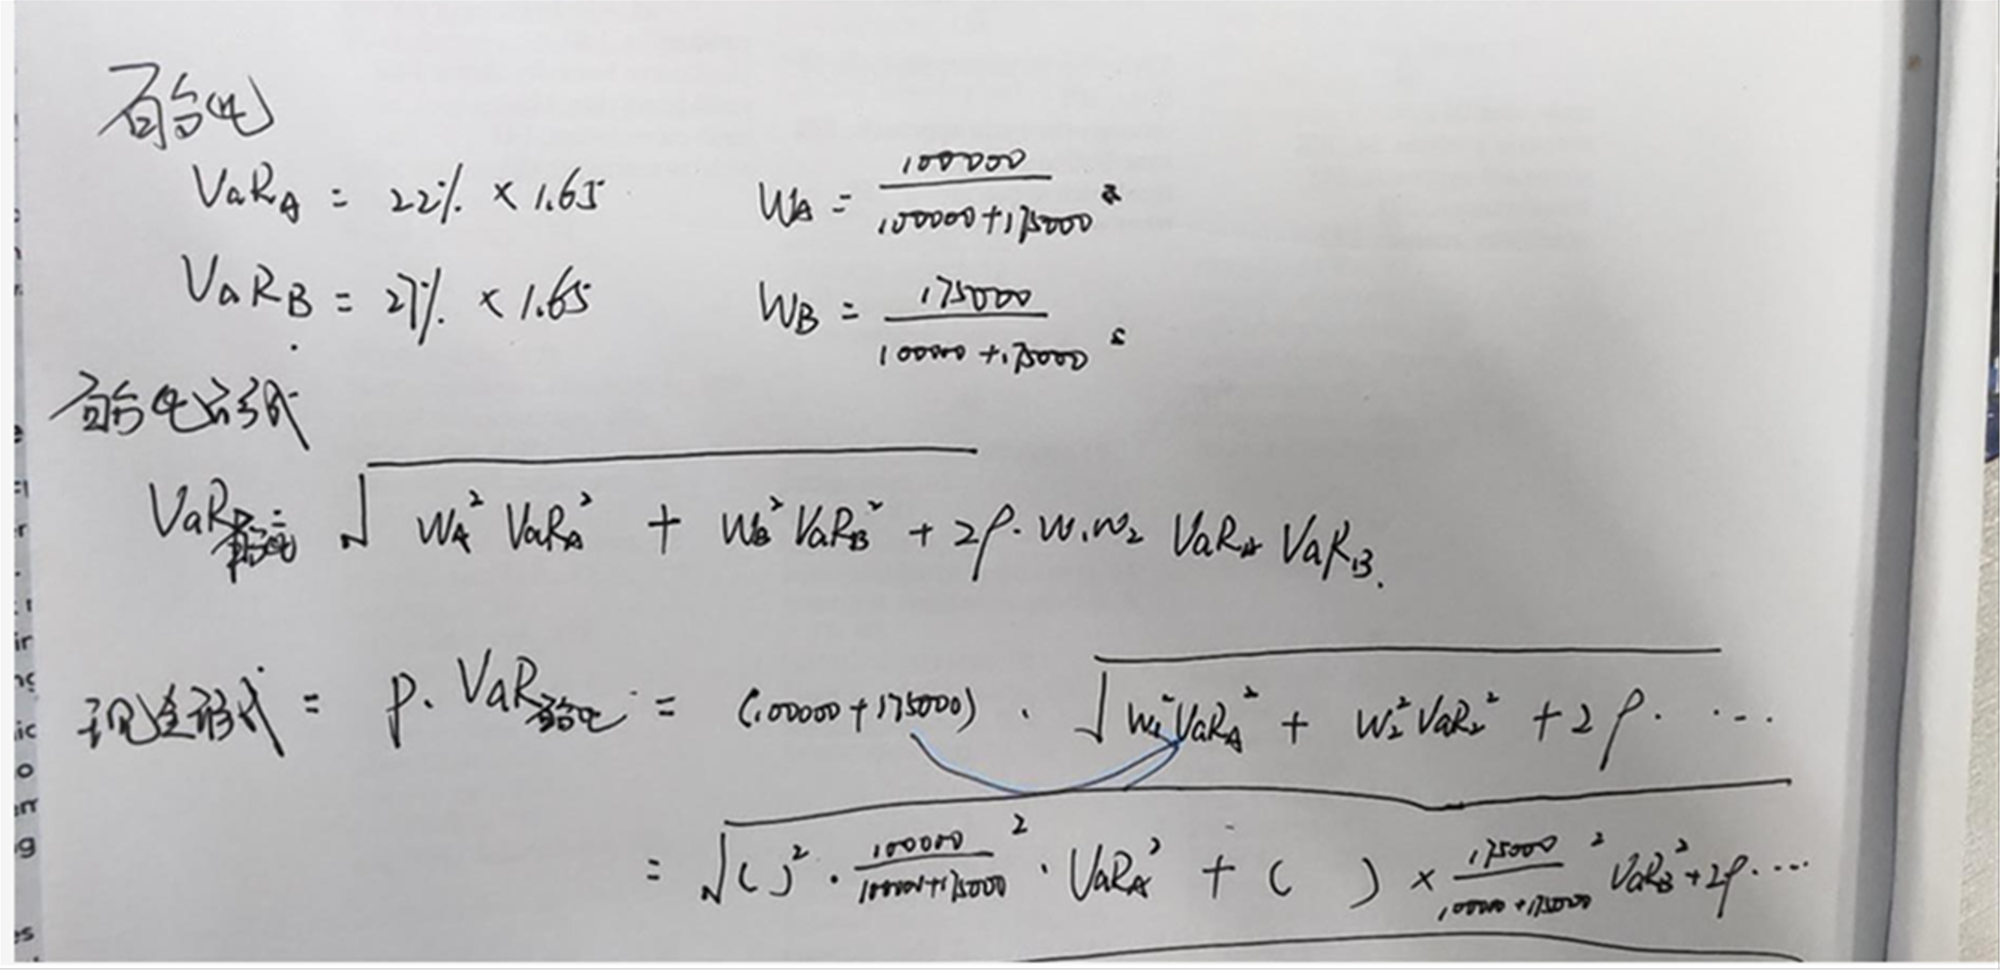 百分比
VaR_A = 22% × 1.65    W_A = 100000 / (100000+175000)
VaR_B = 27% × 1.65    W_B = 175000 / (100000+175000)
百分比形式
VaR百分比 = √ W_A² VaR_A² + W_B² VaR_B² + 2ρ· W₁W₂ VaR_A VaR_B.
现金形式 = P· VaR百分比 = (100000+175000) · √ W₁²VaR_A² + W₂²VaR₂² + 2ρ· ···
= √ ( )² · 100000 / (100000+175000) ² · VaR_A² + ( ) × 175000 / (100000+175000) ² VaR_B² + 2ρ· ····